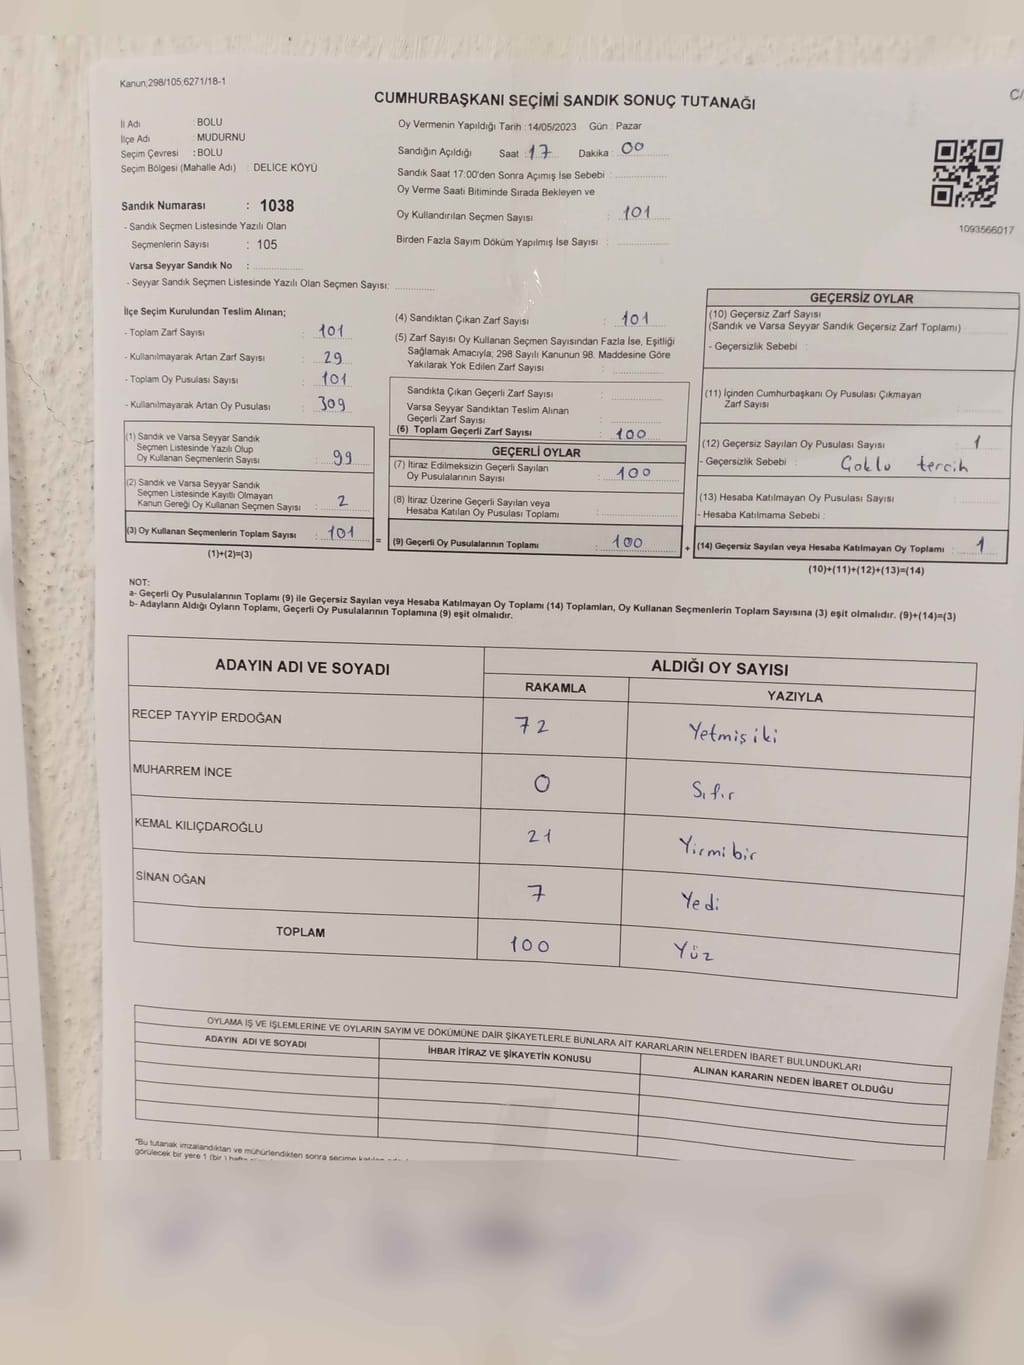 Kanun;298/105;6271/18-1
CUMHURBAŞKANI SEÇİMİ SANDIK SONUÇ TUTANAĞI
İl Adı : BOLU
İlçe Adı : MUDURNU
Seçim Çevresi : BOLU
Seçim Bölgesi (Mahalle Adı) : DELİCE KÖYÜ
Sandık Numarası : 1038
- Sandık Seçmen Listesinde Yazılı Olan
Seçmenlerin Sayısı : 105
Varsa Seyyar Sandık No :
- Seyyar Sandık Seçmen Listesinde Yazılı Olan Seçmen Sayısı:
Oy Vermenin Yapıldığı Tarih : 14/05/2023 Gün : Pazar
Sandığın Açıldığı Saat : 17 Dakika : 00
Sandık Saat 17:00'den Sonra Açımış İse Sebebi :
Oy Verme Saati Bitiminde Sırada Bekleyen ve
Oy Kullandırılan Seçmen Sayısı : 101
Birden Fazla Sayım Döküm Yapılmış İse Sayısı :
1093566017
İlçe Seçim Kurulundan Teslim Alınan;
- Toplam Zarf Sayısı : 101
- Kullanılmayarak Artan Zarf Sayısı : 29
- Toplam Oy Pusulası Sayısı : 101
- Kullanılmayarak Artan Oy Pusulası : 309
(1) Sandık ve Varsa Seyyar Sandık
Seçmen Listesinde Yazılı Olup
Oy Kullanan Seçmenlerin Sayısı : 99
(2) Sandık ve Varsa Seyyar Sandık
Seçmen Listesinde Kayıtlı Olmayan
Kanun Gereği Oy Kullanan Seçmen Sayısı : 2
(3) Oy Kullanan Seçmenlerin Toplam Sayısı : 101
(1)+(2)=(3)
(4) Sandıktan Çıkan Zarf Sayısı : 101
(5) Zarf Sayısı Oy Kullanan Seçmen Sayısından Fazla İse, Eşitliği
Sağlamak Amacıyla; 298 Sayılı Kanunun 98. Maddesine Göre
Yakılarak Yok Edilen Zarf Sayısı :
Sandıkta Çıkan Geçerli Zarf Sayısı :
Varsa Seyyar Sandıktan Teslim Alınan
Geçerli Zarf Sayısı :
(6) Toplam Geçerli Zarf Sayısı : 100
GEÇERLİ OYLAR
(7) İtiraz Edilmeksizin Geçerli Sayılan
Oy Pusulalarının Sayısı : 100
(8) İtiraz Üzerine Geçerli Sayılan veya
Hesaba Katılan Oy Pusulası Toplamı :
= (9) Geçerli Oy Pusulalarının Toplamı : 100
GEÇERSİZ OYLAR
(10) Geçersiz Zarf Sayısı
(Sandık ve Varsa Seyyar Sandık Geçersiz Zarf Toplamı)
- Geçersizlik Sebebi :
(11) İçinden Cumhurbaşkanı Oy Pusulası Çıkmayan
Zarf Sayısı
(12) Geçersiz Sayılan Oy Pusulası Sayısı : 1
- Geçersizlik Sebebi : Goklu tercih
(13) Hesaba Katılmayan Oy Pusulası Sayısı :
- Hesaba Katılmama Sebebi :
+ (14) Geçersiz Sayılan veya Hesaba Katılmayan Oy Toplamı : 1
(10)+(11)+(12)+(13)=(14)
NOT:
a- Geçerli Oy Pusulalarının Toplamı (9) ile Geçersiz Sayılan veya Hesaba Katılmayan Oy Toplamı (14) Toplamları, Oy Kullanan Seçmenlerin Toplam Sayısına (3) eşit olmalıdır. (9)+(14)=(3)
b- Adayların Aldığı Oyların Toplamı, Geçerli Oy Pusulalarının Toplamına (9) eşit olmalıdır.
ADAYIN ADI VE SOYADI ALDIĞI OY SAYISI
RAKAMLA YAZIYLA
RECEP TAYYİP ERDOĞAN 72 Yetmiş iki
MUHARREM İNCE 0 Sıfır
KEMAL KILIÇDAROĞLU 21 Yirmi bir
SİNAN OĞAN 7 Yedi
TOPLAM 100 Yüz
OYLAMA İŞ VE İŞLEMLERİNE VE OYLARIN SAYIM VE DÖKÜMÜNE DAİR ŞİKAYETLERLE BUNLARA AİT KARARLARIN NELERDEN İBARET BULUNDUKLARI
ADAYIN ADI VE SOYADI İHBAR İTİRAZ VE ŞİKAYETİN KONUSU ALINAN KARARIN NEDEN İBARET OLDUĞU
"Bu tutanak imzalandıktan ve mühürlendikten sonra seçime
görülecek bir yere 1 (bir)